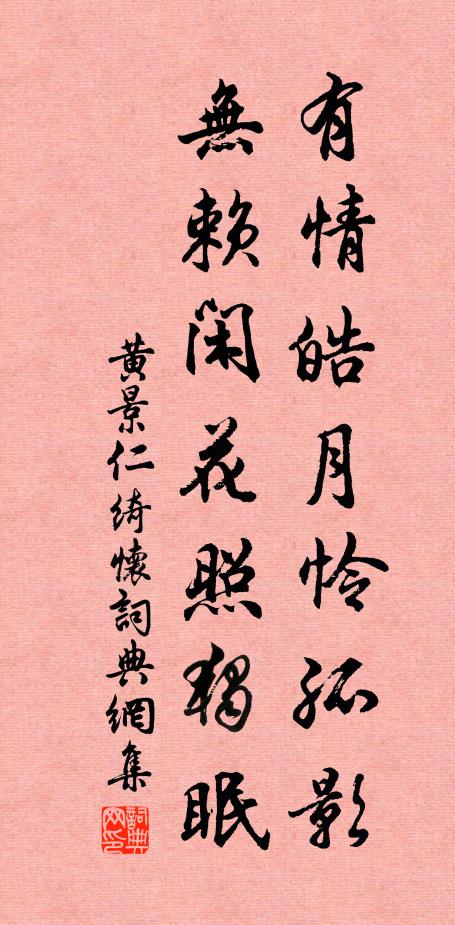 有情皓月怜孤影
無賴闲花照獨眠
黄景仁綺懷詞典網集
詞典网印